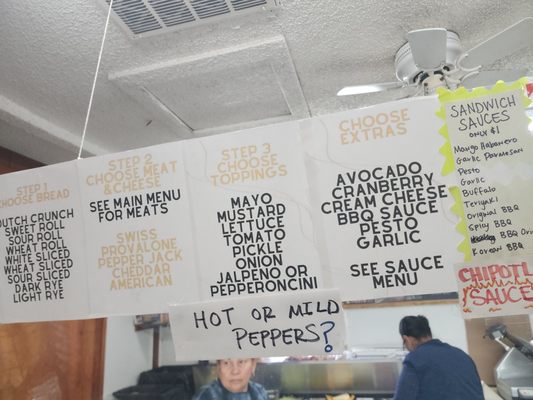 STEP 1
CHOOSE BREAD
DUTCH CRUNCH
SWEET ROLL
SOUR ROLL
WHEAT ROLL
WHITE SLICED
WHEAT SLICED
SOUR SLICED
DARK RYE
LIGHT RYE
STEP 2
CHOOSE MEAT
& CHEESE
SEE MAIN MENU
FOR MEATS
SWISS
PROVALONE
PEPPER JACK
CHEDDAR
AMERICAN
STEP 3
CHOOSE
TOPPINGS
MAYO
MUSTARD
LETTUCE
TOMATO
PICKLE
ONION
JALPENO OR
PEPPERONCINI
HOT OR MILD
PEPPERS?
CHOOSE
EXTRAS
AVOCADO
CRANBERRY
CREAM CHEESE
BBQ SAUCE
PESTO
GARLIC
SEE SAUCE
MENU
SANDWICH
SAUCES
ONLY $1
Mango Habanero
Garlic Parmesan
Pesto
Garlic
Buffalo
Teriyaki
Original BBQ
Spicy BBQ
BBQ
Korean BBQ
CHIPOTL
SAUCE